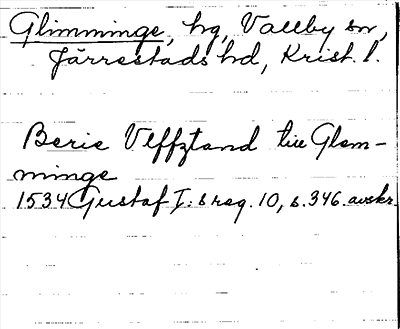 Glimminge, hg, Vallby sn,
Järrestads hd, Krist. l.
Beric Vlffztand till Glem-
minge
1534 Gustaf I:s reg. 10, s. 346. avskr.